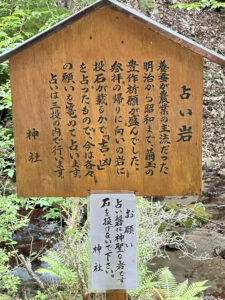 占い岩
養蚕が農業の主流だった
明治から昭和まで、繭玉の
豊作祈願が盛んでした。
参拝の帰りに向いの岩に
投石が載るかで、「吉」「凶」
を占ったもので、今は各々
の願いを竜めて占います。
占いは三投の内で行います。
神社
お願い
占い岩は神聖な岩です
石を投げないで下さい。
神社